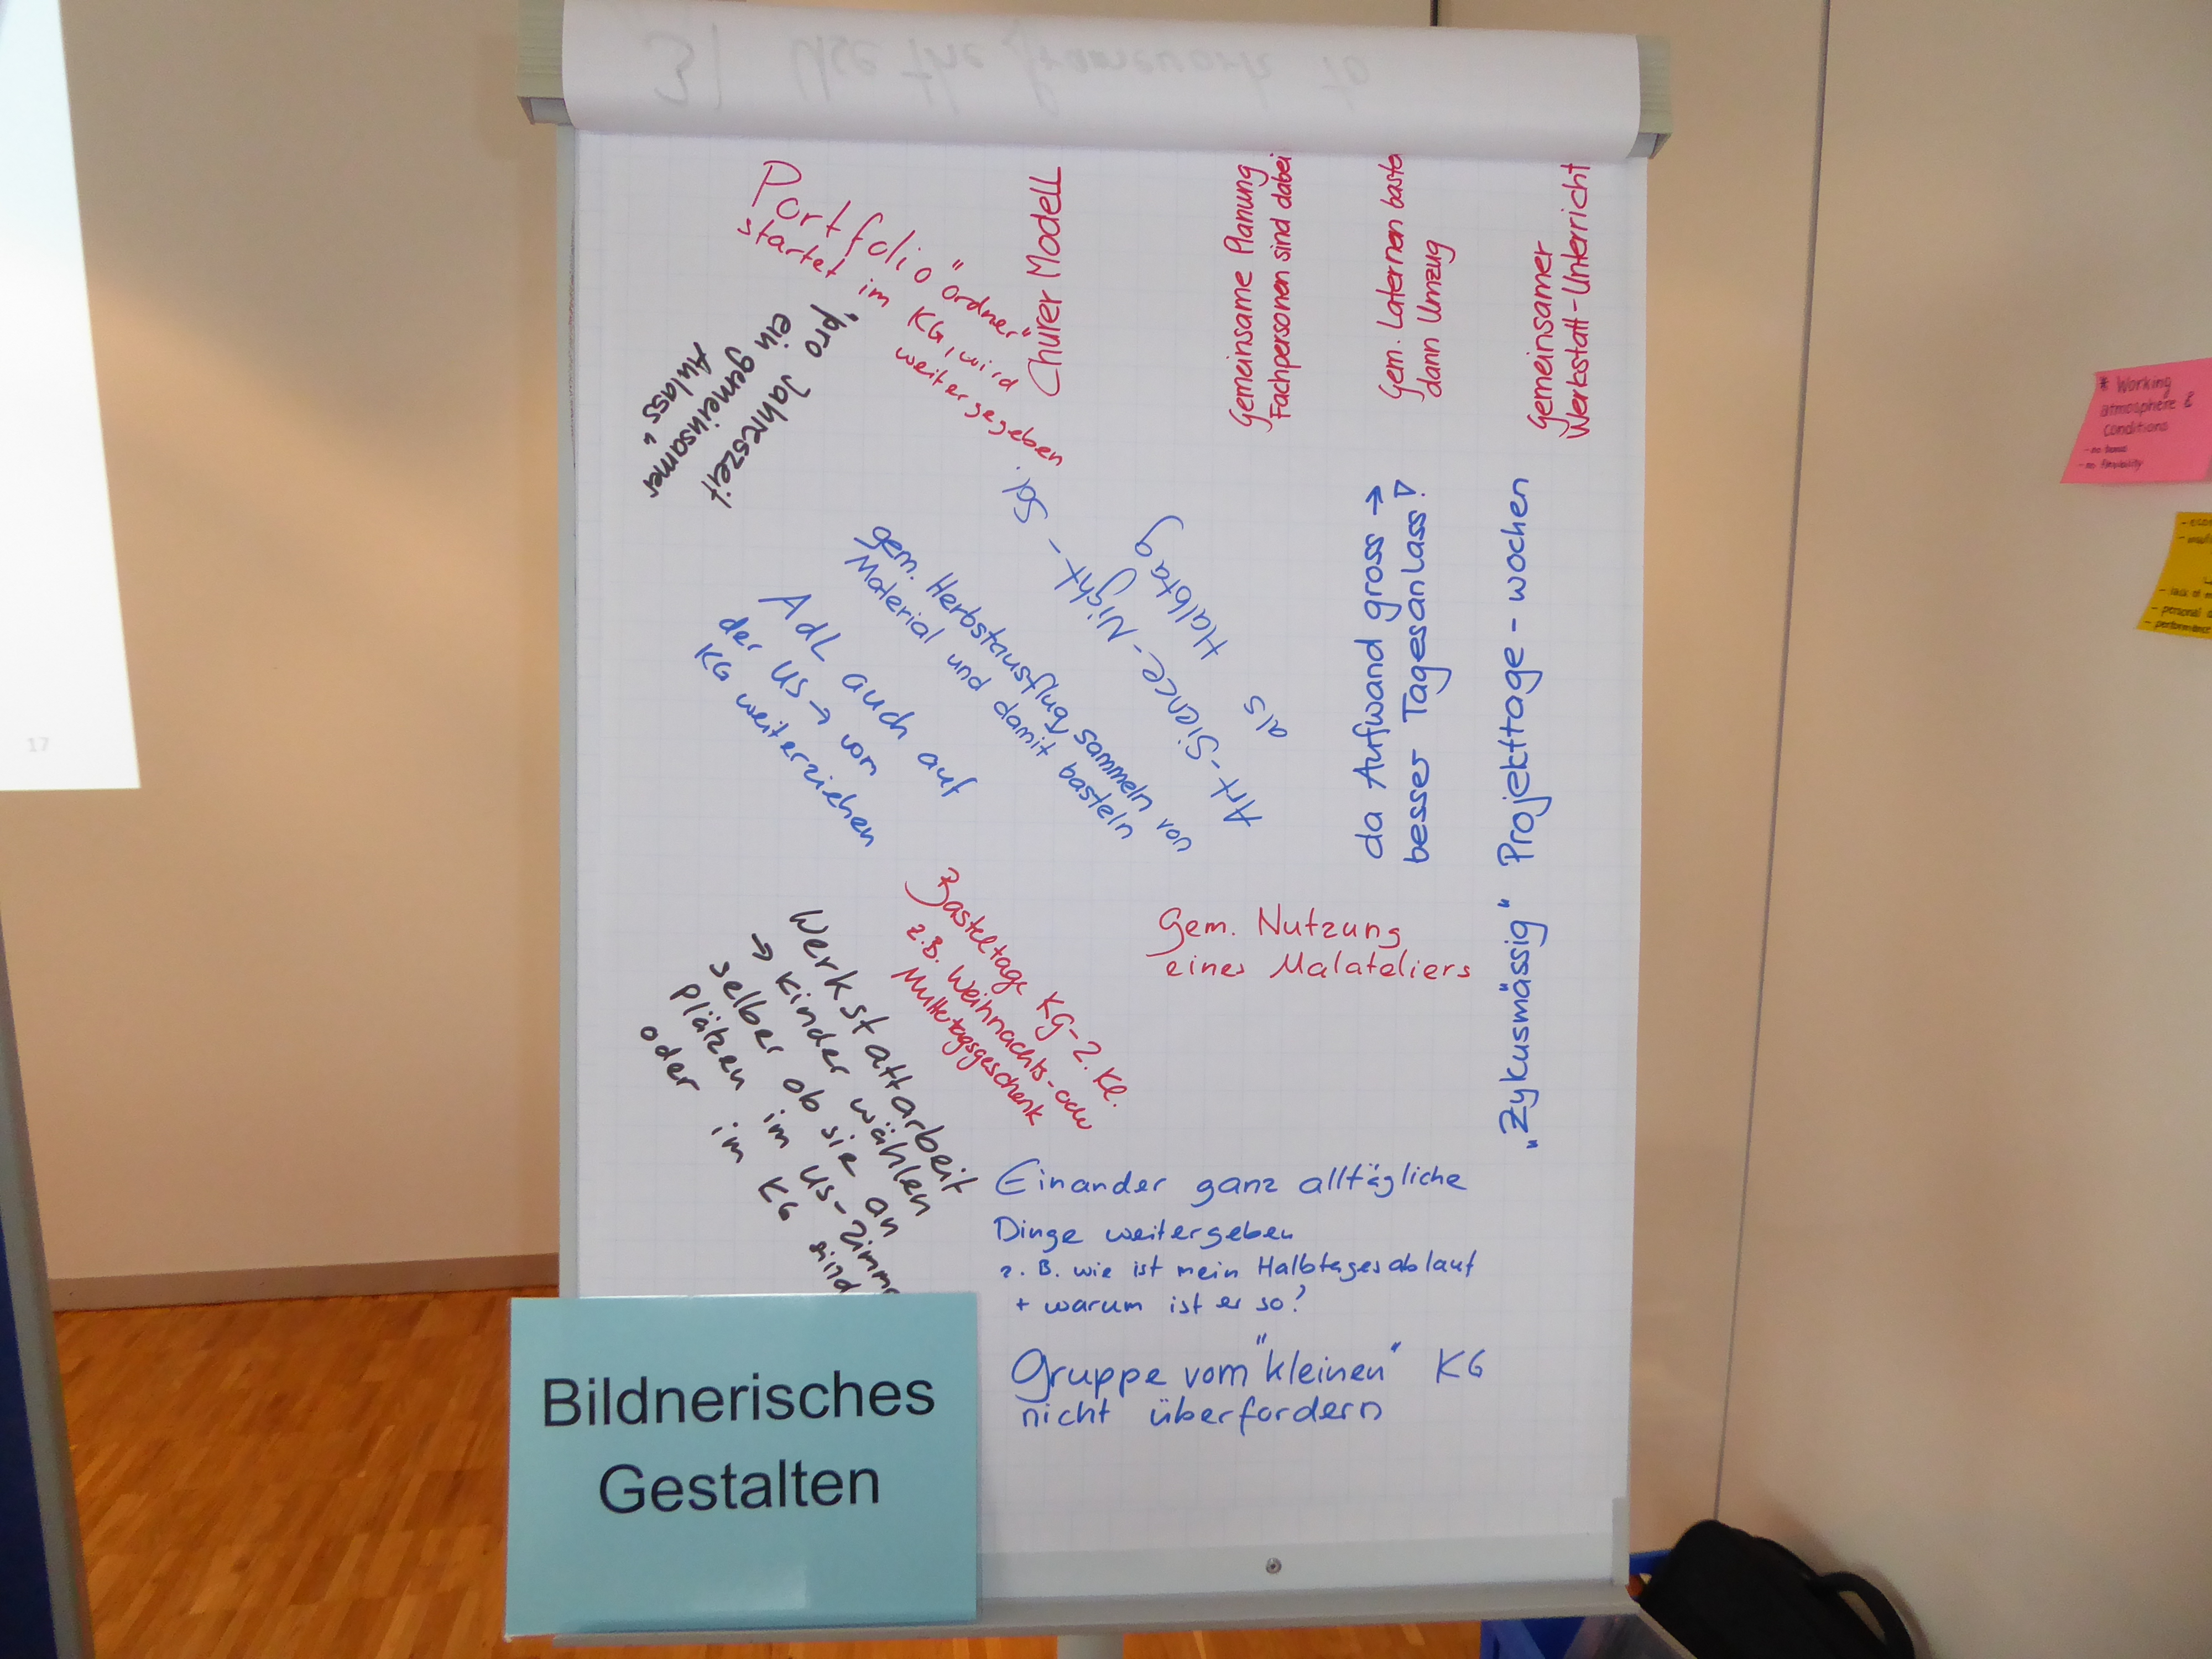 3) Use the framework to
Portfolio "ordner"
startet im KG, wird
weitergegeben
Churer Modell
Gemeinsame Planung
Fachpersonen sind dabei
Gem. Laternen baste
dann Umzug
Gemeinsamer
Werkstatt-Unterricht
"pro Jahreszeit
ein gemeinsamer
Anlass"
gem. Herbstausflug sammeln von
Material und damit basteln
AdL auch auf
der US → vom
KG weiterziehen
Art-Sience-Night-
als Halbtag
da Aufwand gross →
besser Tagesanlass!
"Zykusmässig" Projekttage-wochen
Basteltage KG-2. Kl.
z.B. Weihnachts- oder
Muttertagsgeschenk
Gem. Nutzung
eines Malateliers
Werkstattarbeit
→ Kinder wählen
selber ob sie an
Plätzen im US-Zimme
oder im KG sind
Einander ganz alltägliche
Dinge weitergeben
z.B. wie ist mein Halbtagesablauf
+ warum ist er so?
Gruppe vom "kleinen" KG
nicht überfordern
Bildnerisches
Gestalten
17
* Working
atmosphere &
conditions
- no
- no flexibility
- lack of
- personal
- performance